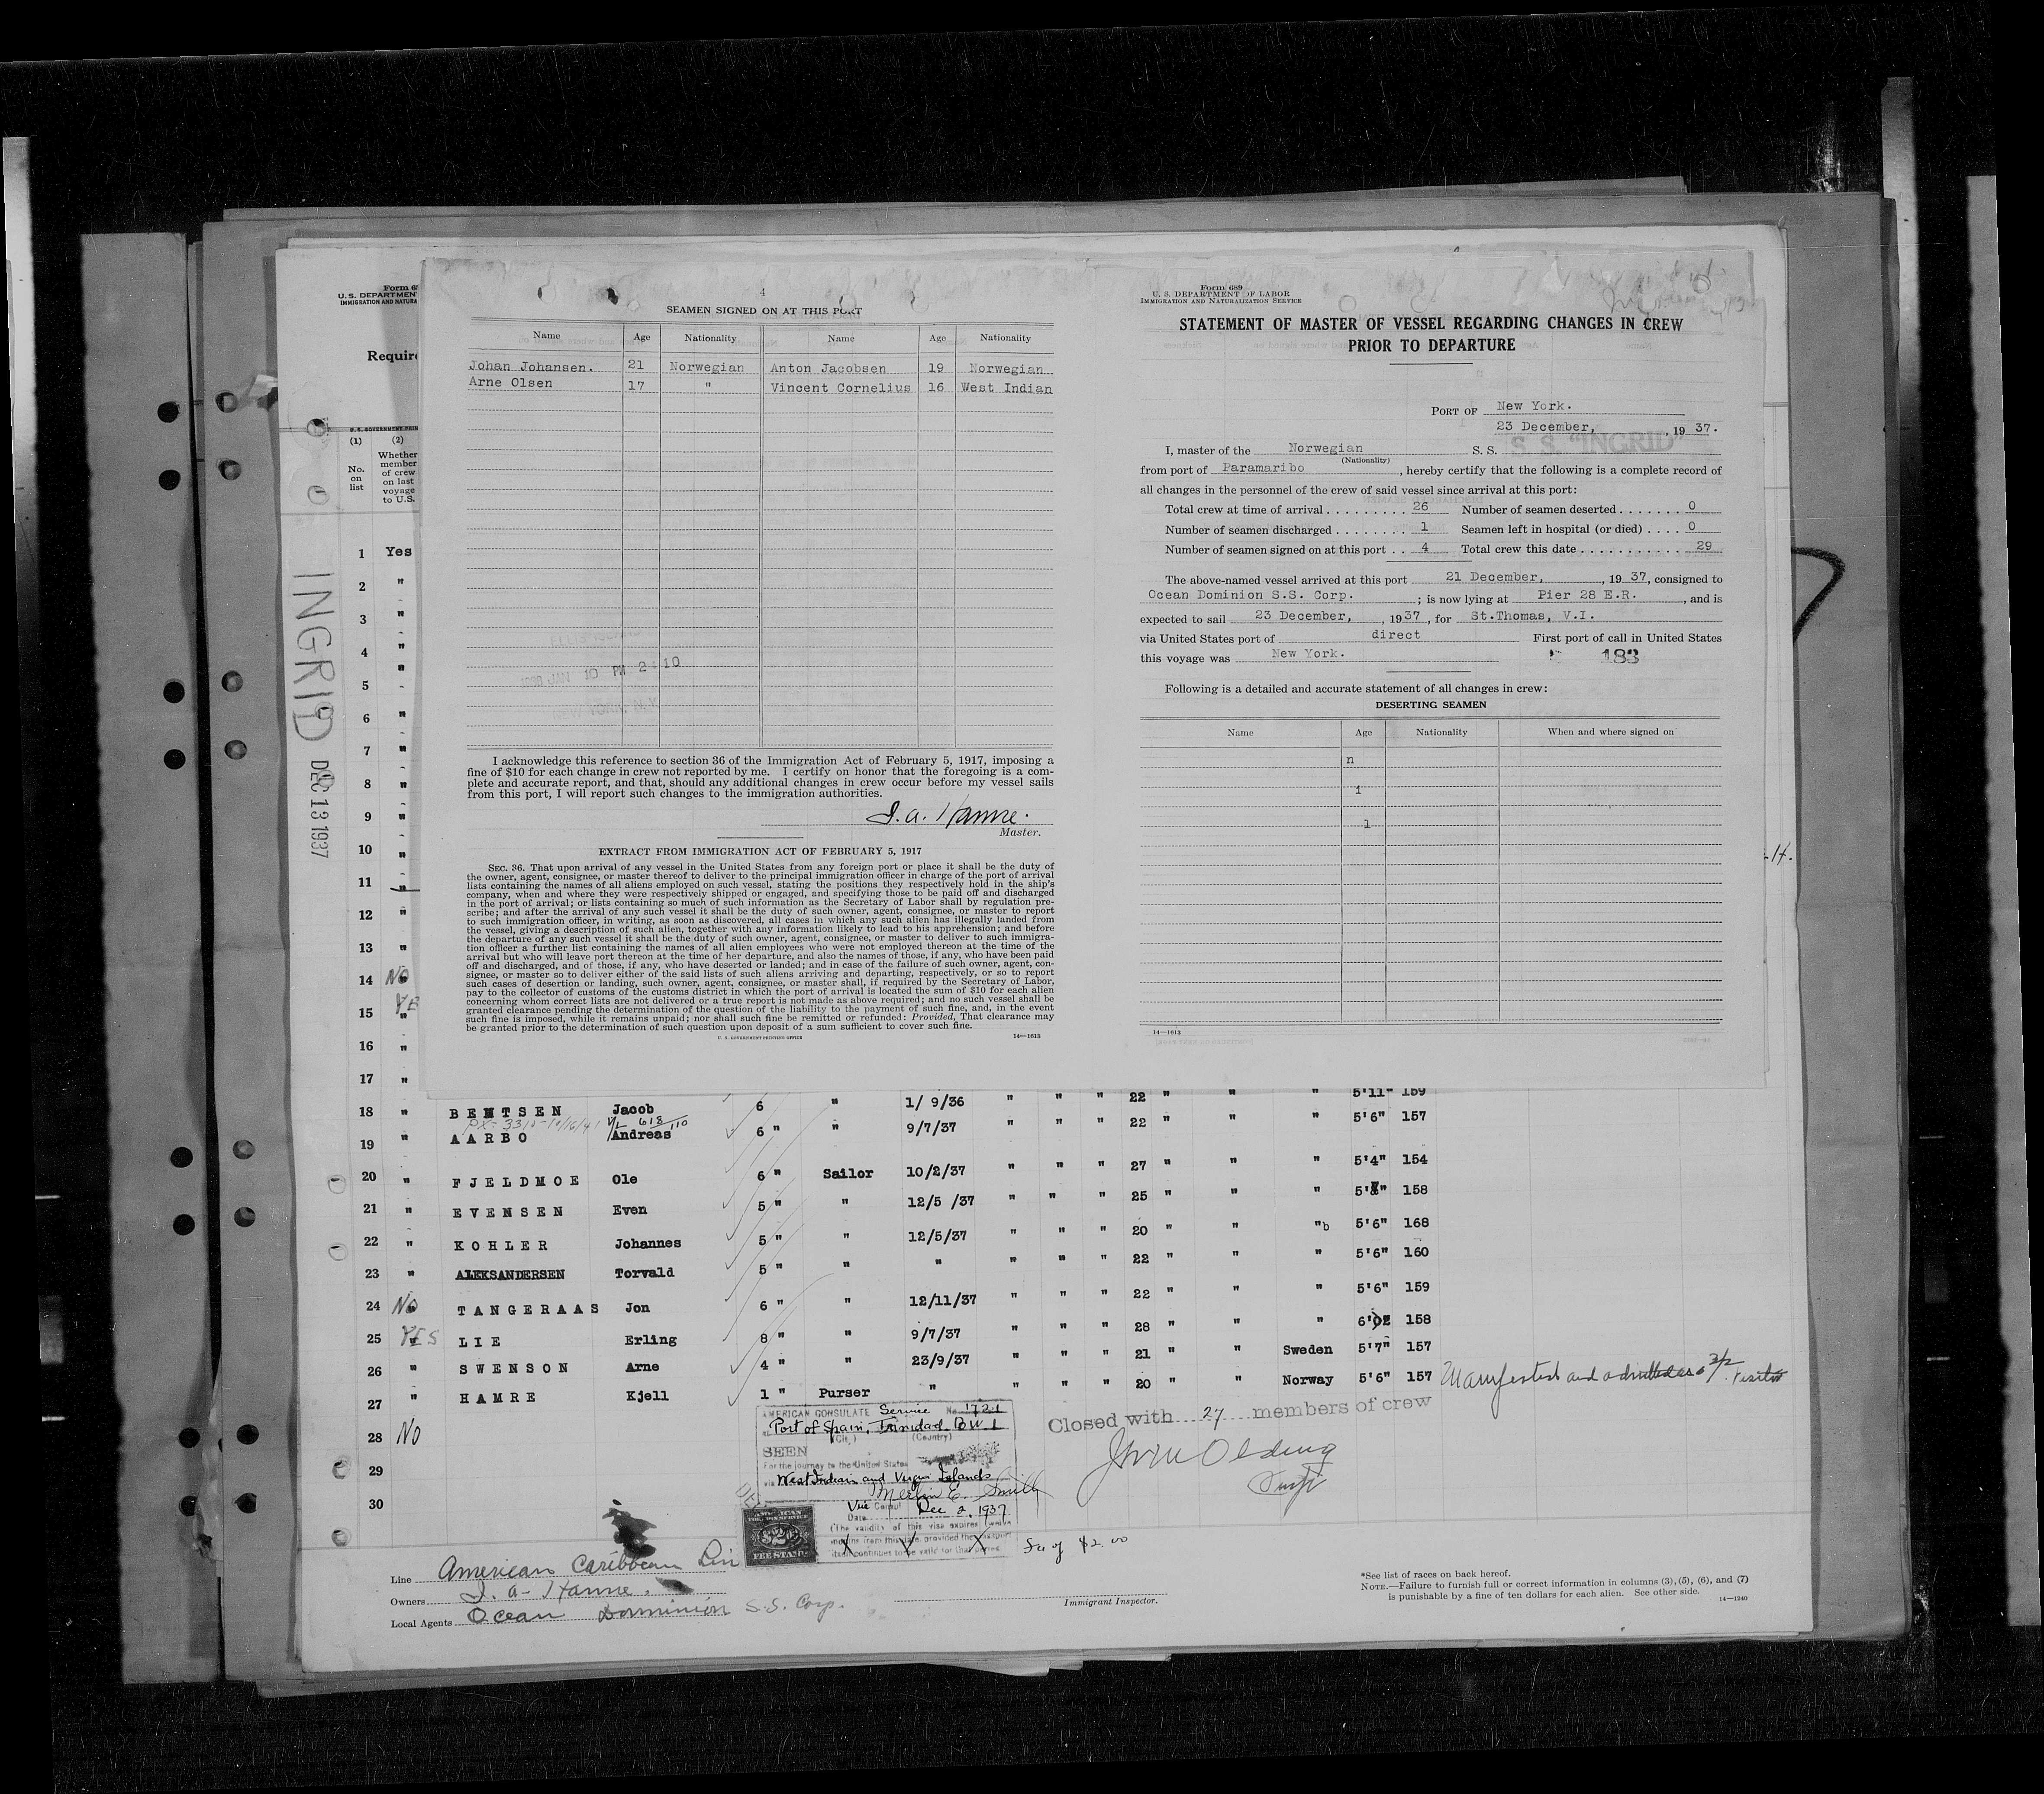 Form 68
U. S. DEPARTMENT
IMMIGRATION AND NATURA
Require
U.S. GOVERNMENT PRIN
(1) (2)
No. on list
Whether member of crew on last voyage to U.S.
1 Yes
2 "
3 "
4 "
5 "
6 "
7 "
8 "
9 "
10 "
11 "
12 "
13 "
14 NO
15 YE
16 "
17 "
INGRID DEC 13 1937
4
SEAMEN SIGNED ON AT THIS PORT
Name Age Nationality Name Age Nationality
Johan Johansen. 21 Norwegian Anton Jacobsen 19 Norwegian
Arne Olsen 17 " Vincent Cornelius 16 West Indian
ELLIS ISLAND
JAN 10 PM 2:10
NEW YORK, N.Y.
I acknowledge this reference to section 36 of the Immigration Act of February 5, 1917, imposing a
fine of $10 for each change in crew not reported by me. I certify on honor that the foregoing is a com-
plete and accurate report, and that, should any additional changes in crew occur before my vessel sails
from this port, I will report such changes to the immigration authorities.
J. a. Hanne.
Master.
EXTRACT FROM IMMIGRATION ACT OF FEBRUARY 5, 1917
SEC. 36. That upon arrival of any vessel in the United States from any foreign port or place it shall be the duty of
the owner, agent, consignee, or master thereof to deliver to the principal immigration officer in charge of the port of arrival
lists containing the names of all aliens employed on such vessel, stating the positions they respectively hold in the ship's
company, when and where they were respectively shipped or engaged, and specifying those to be paid off and discharged
in the port of arrival; or lists containing so much of such information as the Secretary of Labor shall by regulation pre-
scribe; and after the arrival of any such vessel it shall be the duty of such owner, agent, consignee, or master to report
to such immigration officer, in writing, as soon as discovered, all cases in which any such alien has illegally landed from
the vessel, giving a description of such alien, together with any information likely to lead to his apprehension; and before
the departure of any such vessel it shall be the duty of such owner, agent, consignee, or master to deliver to such immigra-
tion officer a further list containing the names of all alien employees who were not employed thereon at the time of the
arrival but who will leave port thereon at the time of her departure, and also the names of those, if any, who have been paid
off and discharged, and of those, if any, who have deserted or landed; and in case of the failure of such owner, agent, con-
signee, or master so to deliver either of the said lists of such aliens arriving and departing, respectively, or so to report
such cases of desertion or landing, such owner, agent, consignee, or master shall, if required by the Secretary of Labor,
pay to the collector of customs of the customs district in which the port of arrival is located the sum of $10 for each alien
concerning whom correct lists are not delivered or a true report is not made as above required; and no such vessel shall be
granted clearance pending the determination of the question of the liability to the payment of such fine, and, in the event
such fine is imposed, while it remains unpaid; nor shall such fine be remitted or refunded: Provided, That clearance may
be granted prior to the determination of such question upon deposit of a sum sufficient to cover such fine.
U. S. GOVERNMENT PRINTING OFFICE 14—1613
Form 689
U. S. DEPARTMENT OF LABOR
IMMIGRATION AND NATURALIZATION SERVICE
STATEMENT OF MASTER OF VESSEL REGARDING CHANGES IN CREW
PRIOR TO DEPARTURE
PORT OF New York.
23 December, , 19 37.
I, master of the Norwegian S. S. S. S. "INGRID"
(Nationality)
from port of Paramaribo , hereby certify that the following is a complete record of
all changes in the personnel of the crew of said vessel since arrival at this port:
Total crew at time of arrival 26 Number of seamen deserted 0
Number of seamen discharged 1 Seamen left in hospital (or died) 0
Number of seamen signed on at this port 4 Total crew this date 29
The above-named vessel arrived at this port 21 December, , 19 37, consigned to
Ocean Dominion S.S. Corp. ; is now lying at Pier 28 E.R. , and is
expected to sail 23 December, , 1937 , for St.Thomas, V.I.
via United States port of direct First port of call in United States
this voyage was New York. 183
Following is a detailed and accurate statement of all changes in crew:
DESERTING SEAMEN
Name Age Nationality When and where signed on
n
i
l
14—1613
" 22 " " " 5'11" 159
18 " BENTSEN Jacob 6 " 1/ 9/36 " " " 22 " " " 5'6" 157
19 " AARBO Andreas 6 " " 9/7/37 " " " 22 " " "
20 " FJELDMOE Ole 6 " Sailor 10/2/37 " " " 27 " " " 5'4" 154
21 " EVENSEN Even 5 " " 12/5 /37 " " " 25 " " " 158
22 " KOHLER Johannes 5 " " 12/5/37 " " " 20 " " "b 5'6" 168
23 " ALEKSANDERSEN Torvald 5 " " " " " " 22 " " " 5'6" 160
24 No TANGERAAS Jon 6 " " 12/11/37 " " " 22 " " " 5'6" 159
25 YES LIE Erling 8 " " 9/7/37 " " " 28 " " " 158
26 " SWENSON Arne 4 " " 23/9/37 " " " 21 " " Sweden 5'7" 157
27 " HAMRE Kjell 1 " Purser " " " " 20 " " Norway 5'6" 157 Manifested and admitted as 3/2 Visitor
28 No
29
30
AMERICAN CONSULATE Service No. 1721
at Port of Spain, Trinidad. B W I
(City) (Country)
SEEN
For the journey to the United States
via West Indian and Virgin Islands
Merlin E. Smith
Vice Consul
Date Dec 2, 1937
(The validity of this visa expires twelve
months from this date provided the passport
item continues to be valid for that period.
AMERICAN
FOREIGN SERVICE
$2
FEE STAMP
Closed with 27 members of crew
Fee of $2.00
Line American Caribbean Lin
Owners J. a. Hanne.
Local Agents Ocean Dominion S.S. Corp.
Immigrant Inspector.
*See list of races on back hereof.
NOTE.—Failure to furnish full or correct information in columns (3), (5), (6), and (7)
is punishable by a fine of ten dollars for each alien. See other side.
14—1240